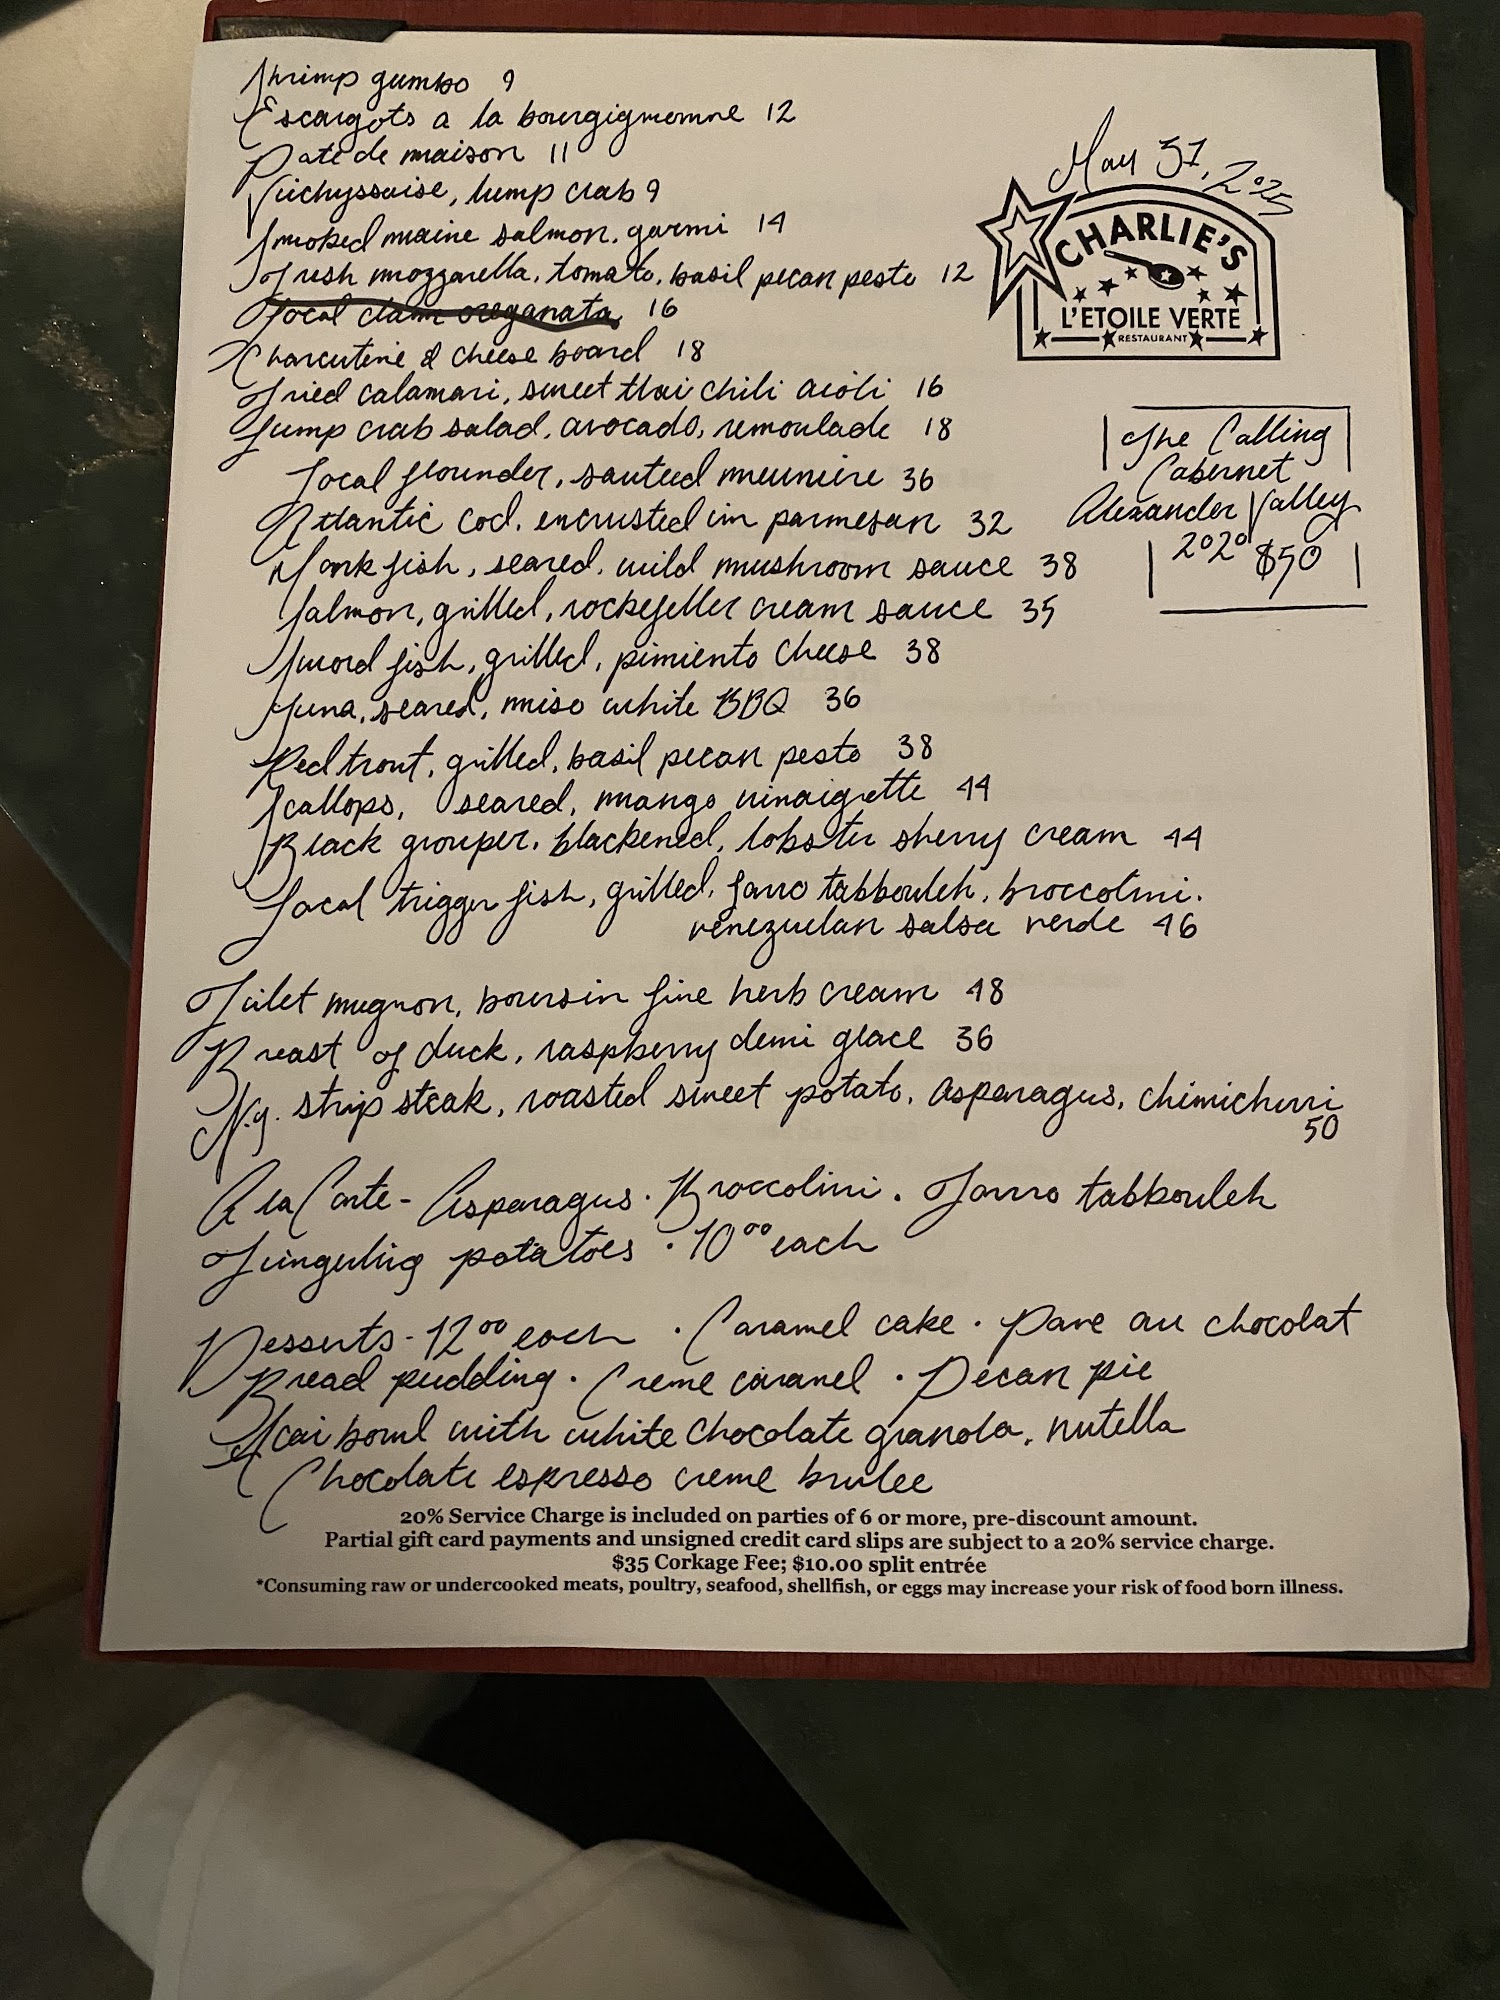 Shrimp gumbo 9
Escargots a la bourgignonne 12
Pate de maison 11
Vichyssoise, lump crab 9
Smoked maine salmon, garni 14
Fresh mozzarella, tomato, basil pecan pesto 12
Local clam oreganata 16
Charcuterie & cheese board 18
Fried calamari, sweet thai chili aioli 16
Lump crab salad, avocado, remoulade 18
Local flounder, sauteed meuniere 36
Atlantic cod, encrusted in parmesan 32
Monk fish, seared, wild mushroom sauce 38
Salmon, grilled, rockefeller cream sauce 35
Sword fish, grilled, pimiento cheese 38
Tuna, seared, miso white BBQ 36
Red trout, grilled, basil pecan pesto 38
Scallops, seared, mango vinaigrette 44
Black grouper, blackened, lobster sherry cream 44
Local trigger fish, grilled, farro tabbouleh, broccolini,
venezuelan salsa verde 46
Filet mignon, boursin fine herb cream 48
Breast of duck, raspberry demi glace 36
N.y. strip steak, roasted sweet potato, asparagus, chimichurri
50
A la Carte - Asparagus · Broccolini · Farro tabbouleh
Fingerling potatoes · 10.00 each
Desserts - 12.00 each · Caramel cake · Pave au chocolat
Bread pudding · Creme caramel · Pecan pie
Acai bowl with white chocolate granola, nutella
Chocolate espresso creme brulee
May 31, 2025
CHARLIE'S
L'ETOILE VERTE
RESTAURANT
The Calling
Cabernet
Alexander Valley
2020 $50
20% Service Charge is included on parties of 6 or more, pre-discount amount.
Partial gift card payments and unsigned credit card slips are subject to a 20% service charge.
$35 Corkage Fee; $10.00 split entrée
*Consuming raw or undercooked meats, poultry, seafood, shellfish, or eggs may increase your risk of food born illness.